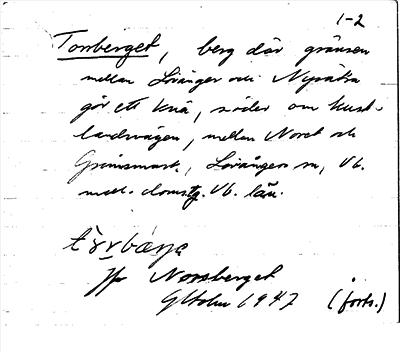 1-2
Torrberget, berg där gränsen
mellan Lövånger och Nysätra
gör ett knä, söder om kust-
landsvägen, mellan Noret och
Grimsmark, Lövångers sn, Vb.
mell. domstg. Vb. län.
Jfr Norsberget
1947 (forts.)